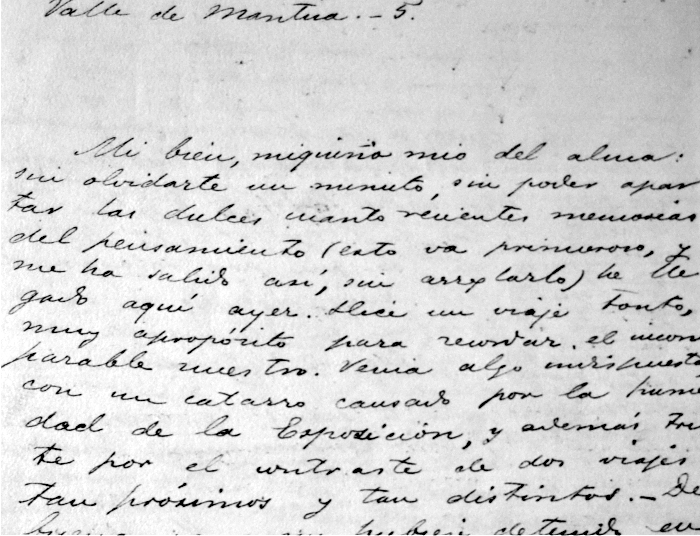 Valle de Mantua. – 5.
Mi bien, miquiño mio del alma:
sin olvidarte un minuto, sin poder apar
tar las dulces cuanto recientes memorias
del pensamiento (esto va primoroso, y
me ha salido así, sin arreglarlo) he lle
gado aquí ayer. Hice un viaje tonto,
muy apropósito para recordar el incom
parable nuestro. Venia algo indispuesta
con un catarro causado por la hume
dad de la Exposición, y además tris
te por el contraste de dos viajes
tan próximos y tan distintos. – De
buena hubiera detenido en